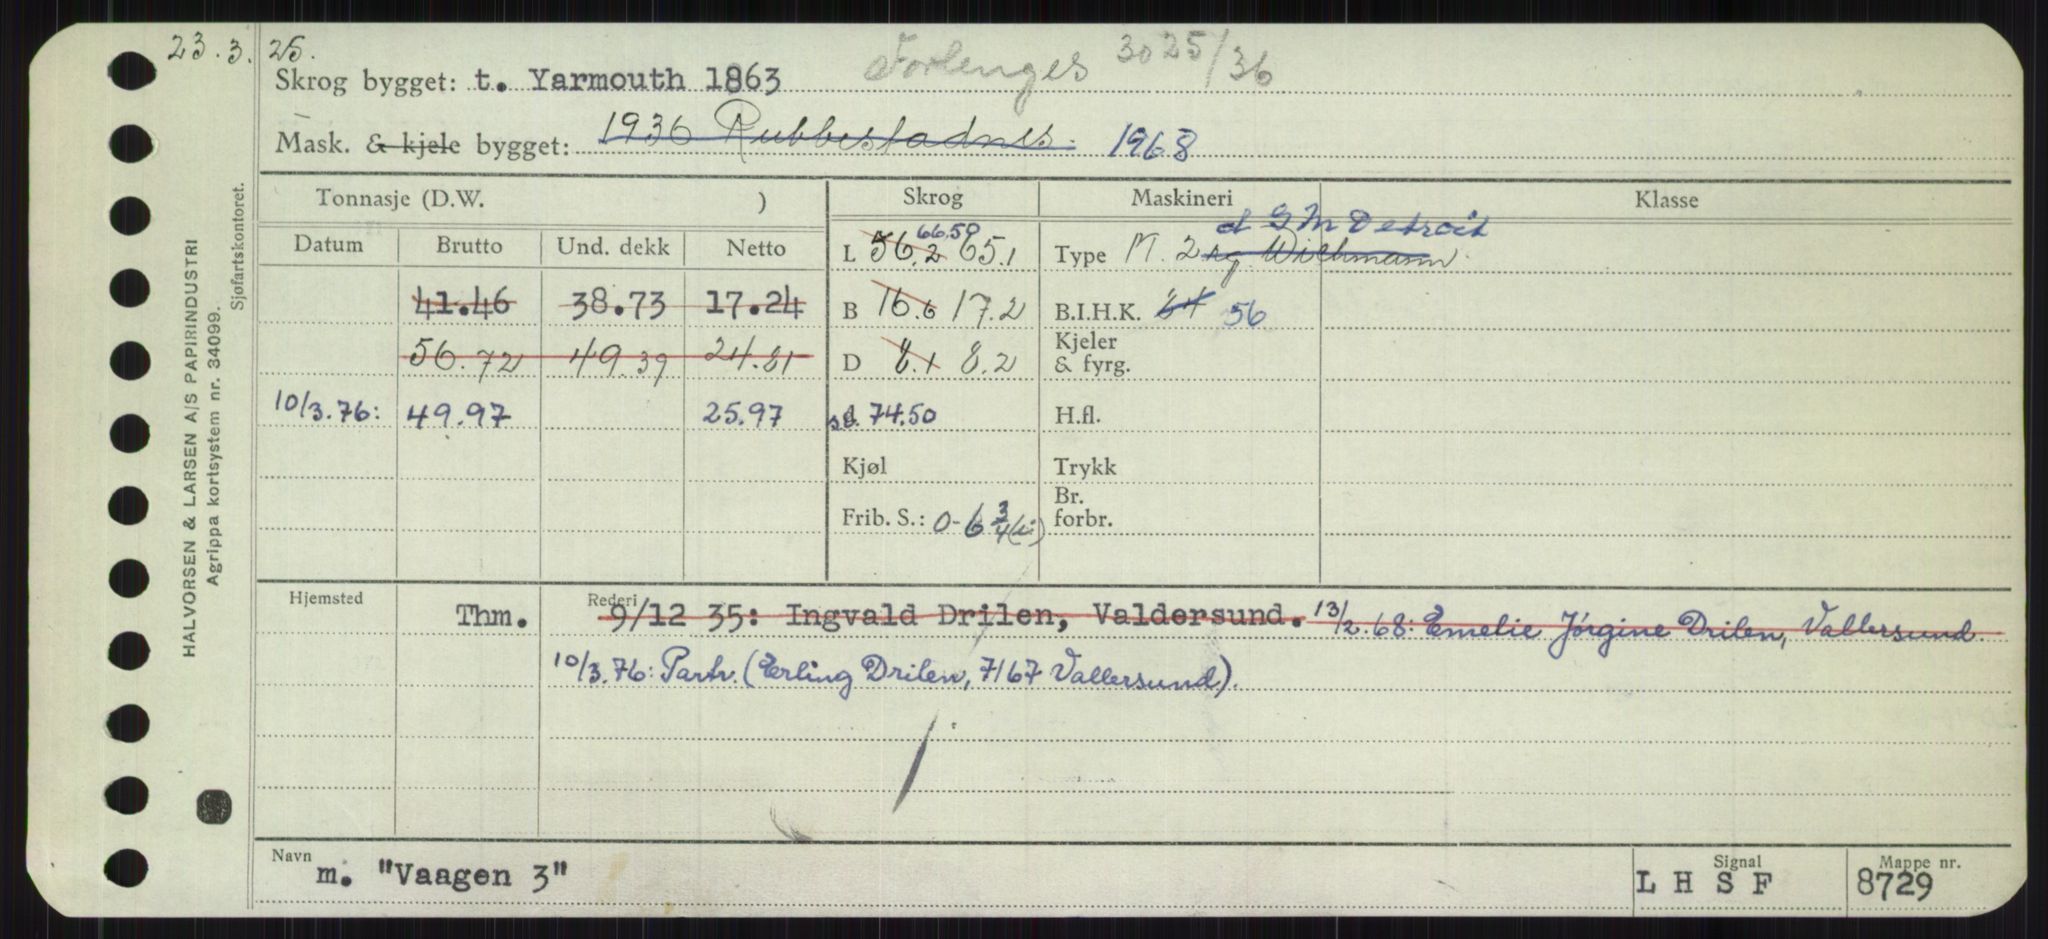 23.3.25.
Forlenges 30 25/36
Skrog bygget: t. Yarmouth 1863
Mask. & kjele bygget: 1936 Rubbestadnes. 1968
Tonnasje (D.W. ) Skrog Maskineri Klasse
Datum Brutto Und. dekk Netto
L 56.2 66.50 65.1 Type M. 2 syl Wichmann d GM Detroit
41.46 38.73 17.24 B 16.6 17.2 B.I.H.K. 84 56
56.72 49.39 24.81 D 8.1 8.2 Kjeler & fyrg.
10/3.76: 49.97 25.97 sd. 74.50 H.fl.
Kjøl Trykk
Frib. S.: 0-6 3/4 Br. forbr.
Hjemsted Thm. Rederi 9/12 35: Ingvald Drilen, Valdersund. 13/2.68: Emelie Jórgine Drilen, Vallersund.
10/3.76: Partr. (Erling Drilen, 7167 Vallersund).
Navn m. "Vaagen 3" Signal L H S F Mappe nr. 8729
HALVORSEN & LARSEN A/S PAPIRINDUSTRI
Agrippa kortsystem nr. 34099.
Sjøfartskontoret.